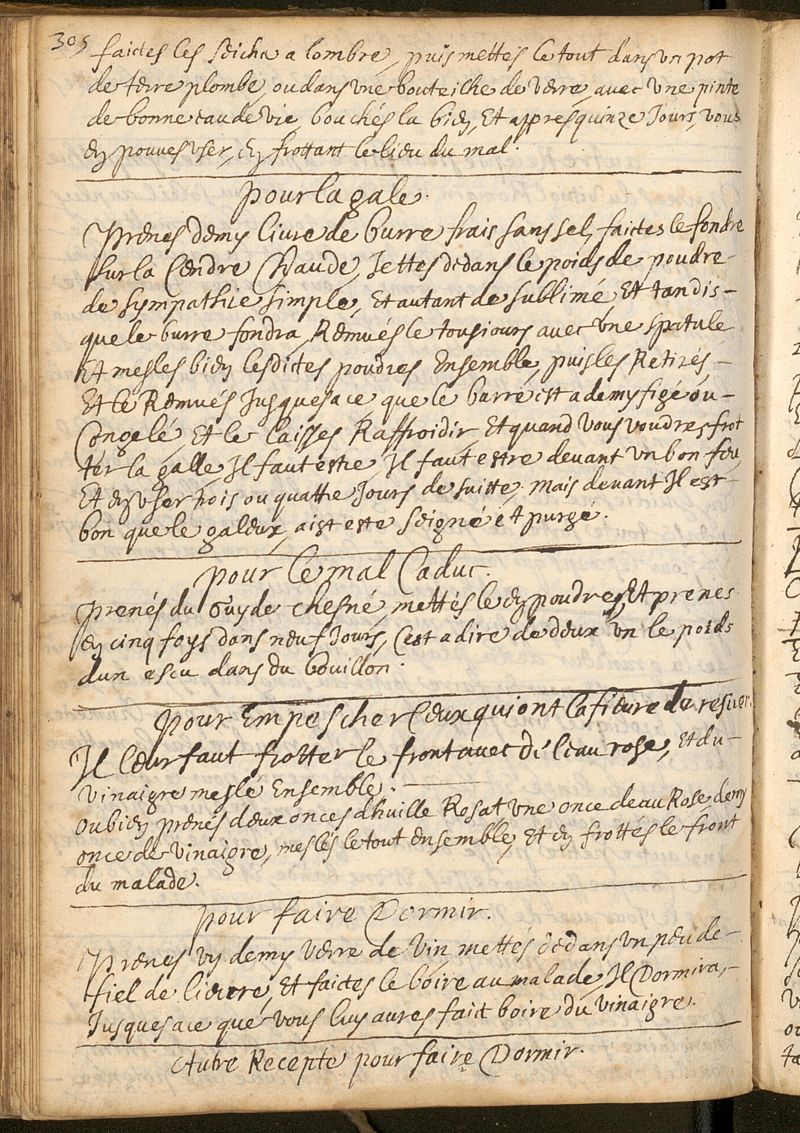 305
faictes les seicher a lombre, puis mettes le tout dans un pot
de terre plombé, ou dans une bouteiche de verre, avec une pinte
de bonne eau de vie, bouchés la bien, Et appres quinze Jours, vous
en pouves user, en frottant le lieu du mal.
pour la gale.
Prenes demy livre de burre frais sans sel, faictes le fondre
sur la Cendre Chaude, Jettes dedans le poids de poudre
de sympathie simple, Et autant de sublimé, Et tandis-
que le burre fondra, Remués le tousiours avec une spatule
Et mesles bien lesdictes poudres Ensemble, puis les Retirés-
Et le Remués Jusques a ce que le burre est a demy figé ou-
Congelé, Et le laisses Raffroidir, Et quand vous voudres frot
ter la galle, Il faut estre Il faut estre devant un bon feu,
Et en user trois ou quattre Jours de suitte, mais devant Il est-
bon que le galeux, aist este seigné et purgé.
pour le mal Caduc.
Prenés du Guy de chesné, mettés le en poudre, Et prenes
en cinq foys dans neuf Jours, C'est a dire de deux un le poids
dun escu dans du bouillon.
pour Empescher Ceux qui ont la fievre de resver.
Il leur faut frotter le front avec de l'eau rose, Et du-
vinaigre mesle Ensemble.
Ou bien prenés deux onces dhuille Rosat une once deau Rose, demy
once de vinaigre, meslés le tout ensemble, Et en frottés le front
du malade.
pour faire Dormir.
Prenes un demy verre de vin mettés dedans un peu de-
fiel de lievre, Et faictes le boire au malade, Il Dormira,-
Jusques a ce que vous luy aures faict boire du vinaigre.
Autre Recepte pour faire Dormir.